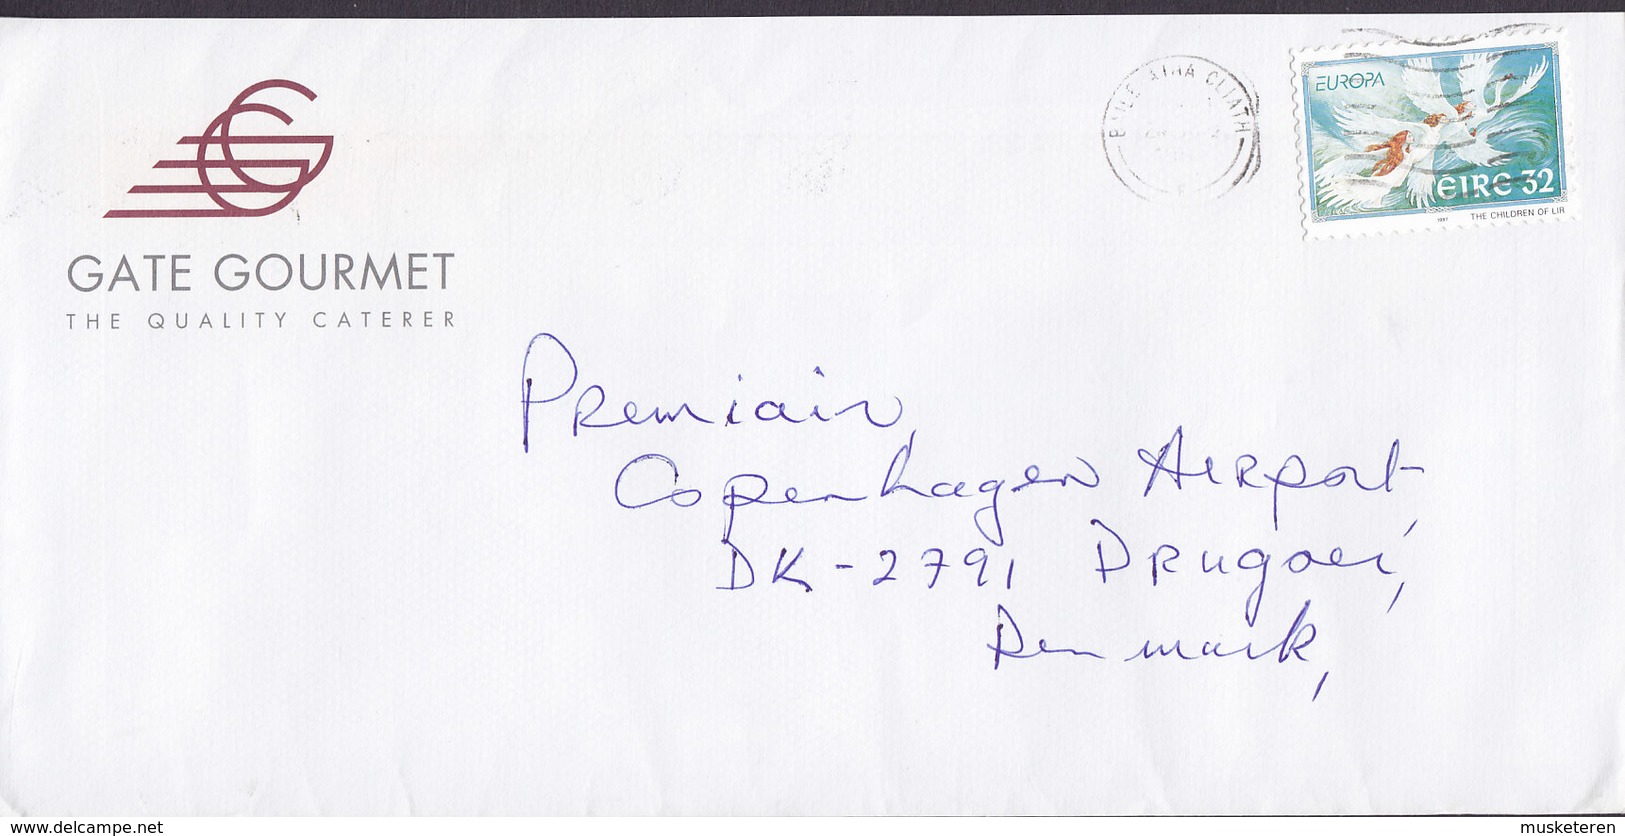 BAILE ÁTHA CLIATH
EUROPA
ÉIRE 32
1997 THE CHILDREN OF LIR
GATE GOURMET
THE QUALITY CATERER
Premiair,
Copenhagen Airport,
DK-2791, Drugoer,
Denmark,
www.delcampe.net
musketeren